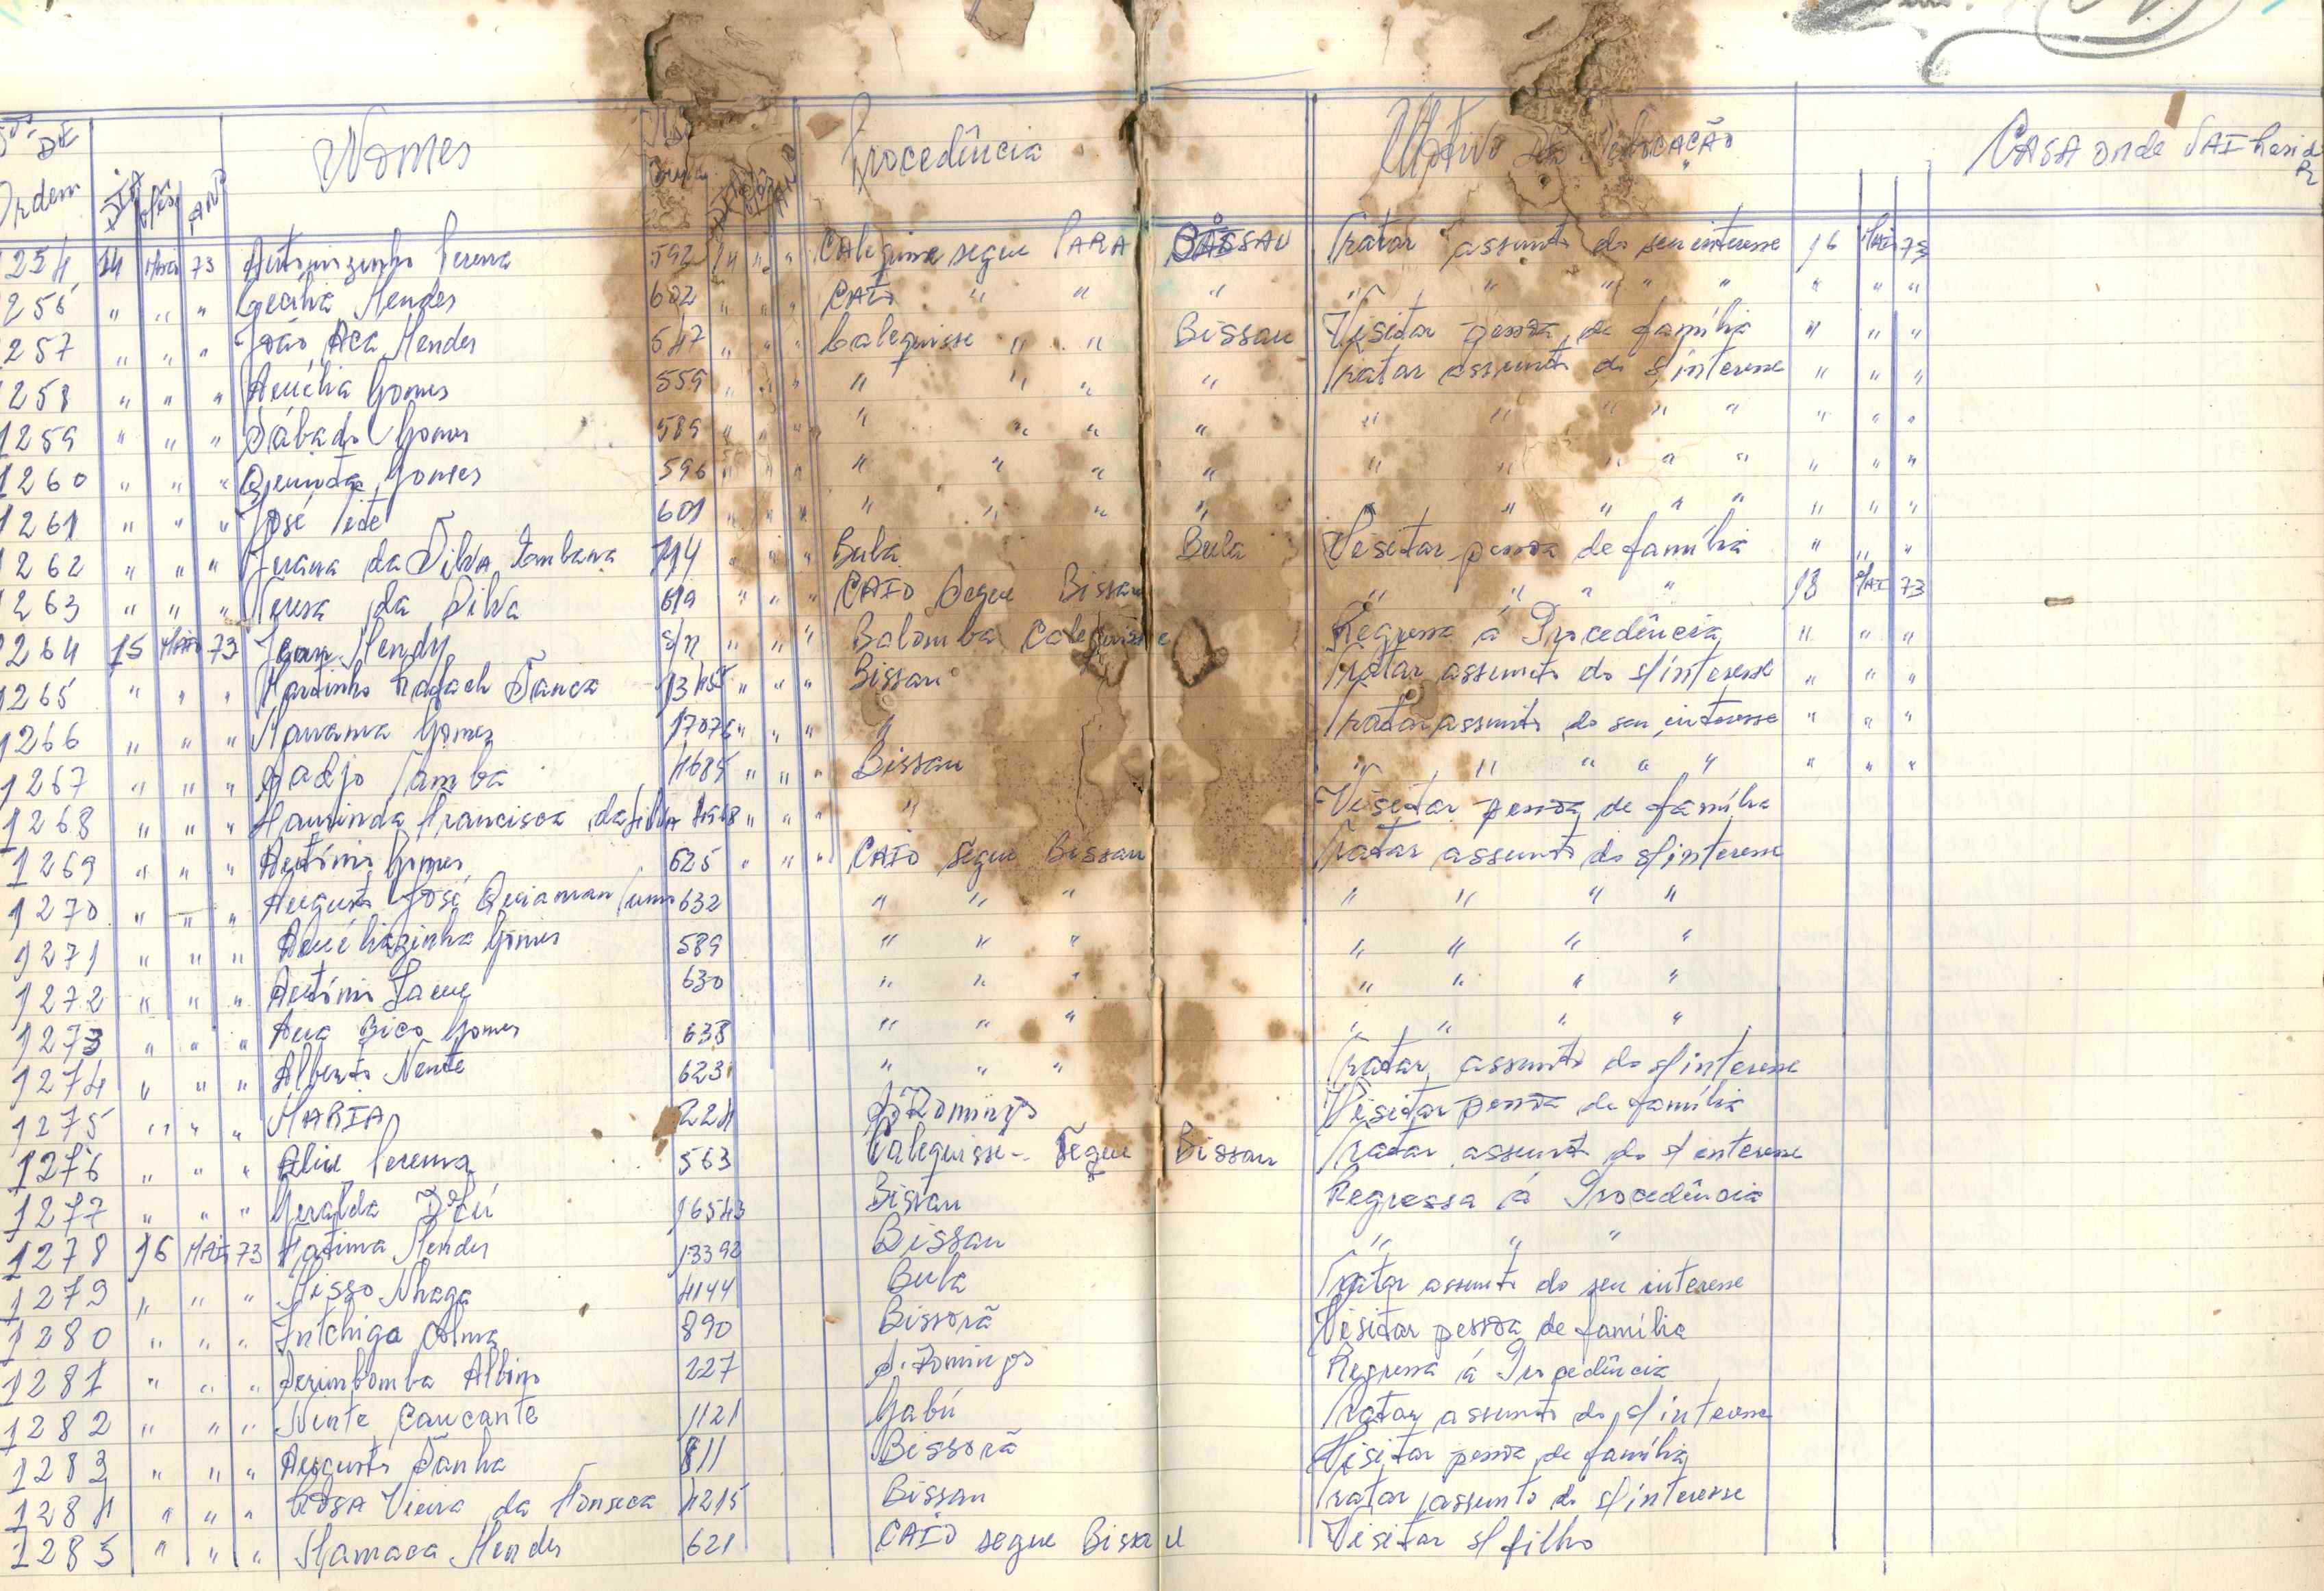 Nº DE Ordem DIA Mês ANO Nomes Nº Guia DIA Mês ANO Procedência Motivo da Deslocação CASA onde VAI
1254 14 Maio 73 Antoninzinho Pereira 592 14 " " Calequisse segue PARA BISSAU Tratar assunto do seu interesse 16 Maio 73
256 " " " Cecília Mendes 602 " " " CAIO " " " " " " " " " " "
257 " " " João Aca Mendes 547 " " " Calequisse " " Bissau Visitar pessoa de família " " "
258 " " " Amélia Gomes 559 " " " " " " " Tratar assunto do s/interesse " " "
1259 " " " Sábado Gomes 589 " " " " " " " " " " " " " " "
1260 " " " Quinta Gomes 596 " " " " " " " " " " " " " " "
1261 " " " José 601 " " " " " " " " " " " " " " "
1262 " " " da Silva 714 " " " Bula Bula Visitar pessoa de família " " "
1263 " " " Teresa da Silva 619 " " " CAIO Segue Bissau " " " " 18 MAI 73
1264 15 Maio 73 Jean Mendy s/n " " " Calequisse Regressa á Procedência " " "
1265 " " " Martinho 13455 " " " Bissau Tratar assunto do s/interesse " " "
1266 " " " Gomes 17076 " " " " Tratar assunto do seu interesse " " "
1267 " " " Sadjo Samba 4685 " " " Bissau " " " " " " " "
1268 " " " Francisca da Silva " " " " Visitar pessoa de família
1269 " " " António Gomes 625 " " " CAIO Segue Bissau Tratar assunto do s/interesse
1270 " " " Augusto José 632 " " " " " " "
1271 " " " Améliazinha Gomes 589 " " " " " " "
1272 " " " António 630 " " " " " " "
1273 " " " Ana Bico Gomes 638 " " " " " " "
1274 " " " Alberto Nente 623 " " " Tratar assunto do s/interesse
1275 " " " MARIA 224 S. Domingos Visitar pessoa de família
1276 " " " Alice Pereira 563 Calequisse - Segue Bissau Tratar assunto do s/interesse
1277 " " " Geralda 16543 Bissau Regressa á Procedência
1278 16 MAI 73 Fatima Mendes 13392 Bissau " " "
1279 " " " Misso Nhaga 4144 Bula Tratar assunto do seu interesse
1280 " " " Intchiga 890 Bissorã Visitar pessoa de família
1281 " " " Albino 227 S. Domingos Regressa á Procedência
1282 " " " Nente Caucante 1121 Gabú Tratar assunto do s/interesse
1283 " " " Augusto Sanha 811 Bissorã Visitar pessoa de família
1284 " " " ROSA Vieira da Fonseca 4215 Bissau Tratar assunto do s/interesse
1285 " " " Mendes 621 CAIO segue Bissau Visitar s/ filho